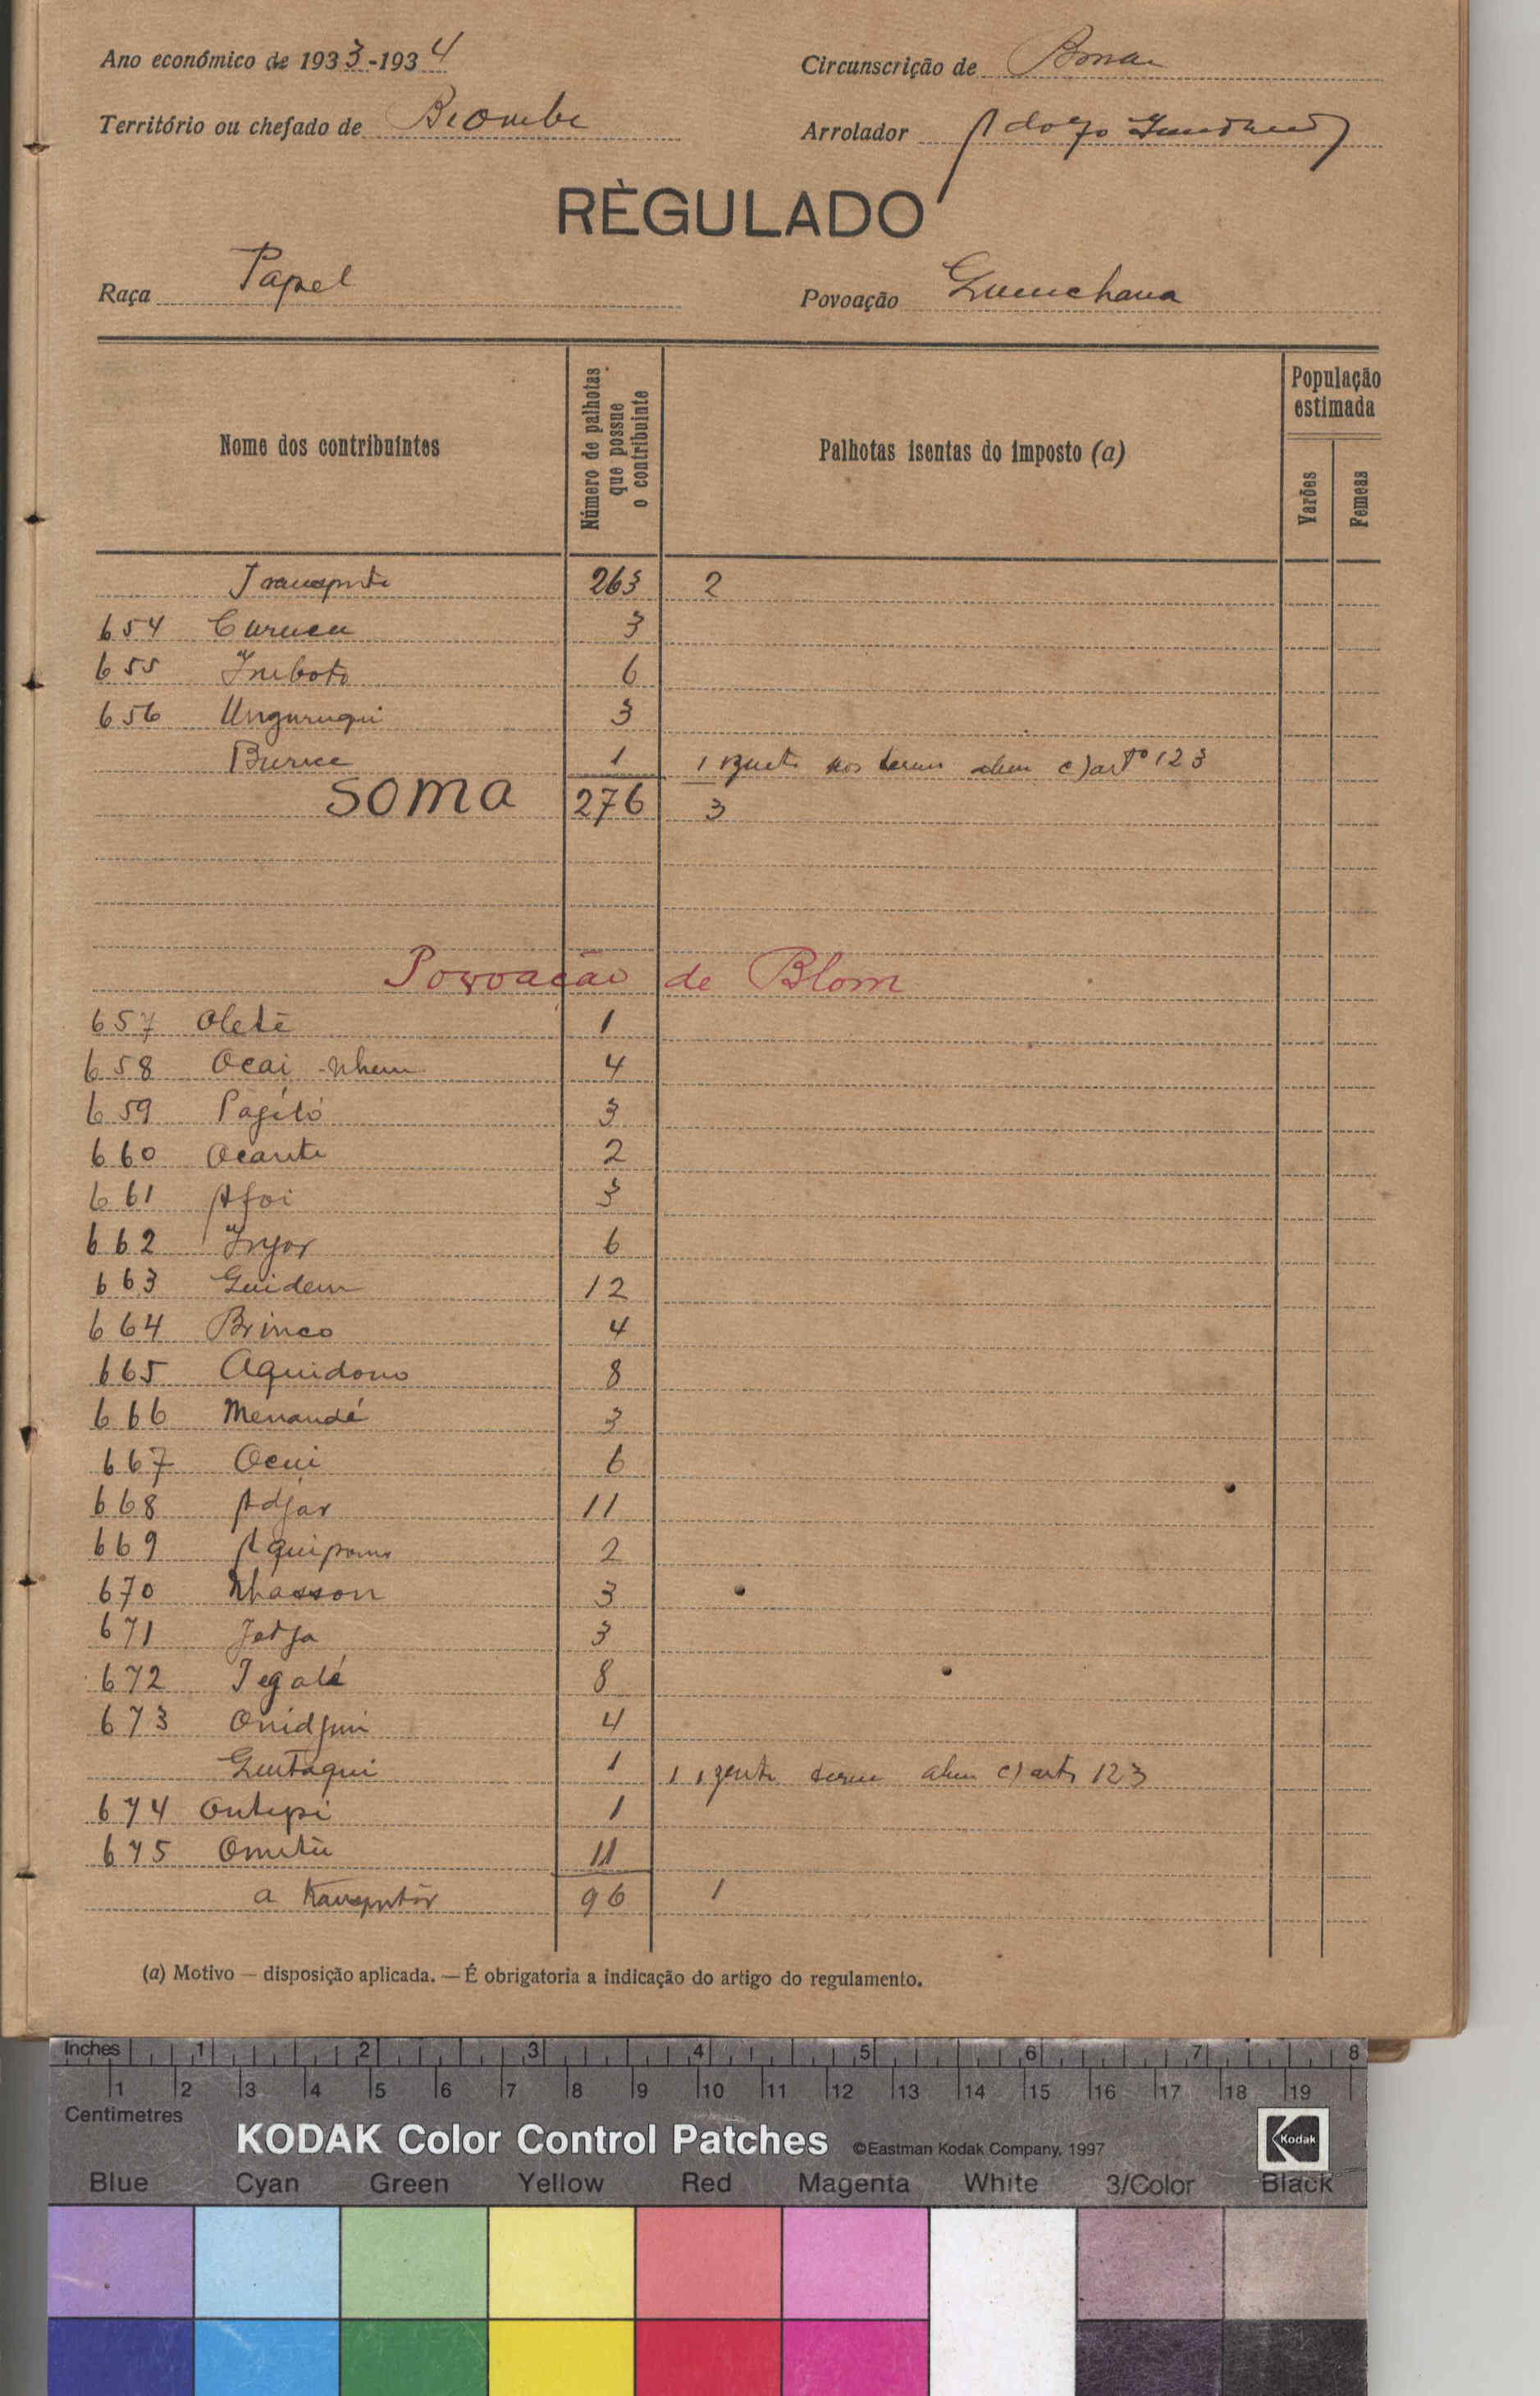 Ano económico de 1933-1934 Circunscrição de
Território ou chefado de Biombe Arrolador Adolfo
RÈGULADO
Raça Papel Povoação Guenchana
Nome dos contribuintes Número de palhotas que possue o contribuinte Palhotas isentas do imposto (a) População estimada
Varões Femeas
Transporte 263 2
654 Curucu 3
655 Imboto 6
656 Unguruqui 3
Burice 1 1 nos alin c) artº 123
SOMA 276 3
Povoação de Blom
657 Oletê 1
658 Ocai Nhem 4
659 Pagétó 3
660 Ocante 2
661 Afoi 3
662 Injor 6
663 Guidem 12
664 Brinco 4
665 Aquidono 8
666 Menandé 3
667 Ocui 6
668 Adjar 11
669 2
670 Nhasson 3
671 Jodja 3
672 Tegalé 8
673 Onidjim 4
Guitaqui 1 1 alin c) artº 123
674 Ontepi 1
675 11
a transportar 96 1
(a) Motivo — disposição aplicada. — É obrigatoria a indicação do artigo do regulamento.
Inches 1 2 3 4 5 6 7 8
1 2 3 4 5 6 7 8 9 10 11 12 13 14 15 16 17 18 19
Centimetres
KODAK Color Control Patches ©Eastman Kodak Company, 1997 Kodak
Blue Cyan Green Yellow Red Magenta White 3/Color Black